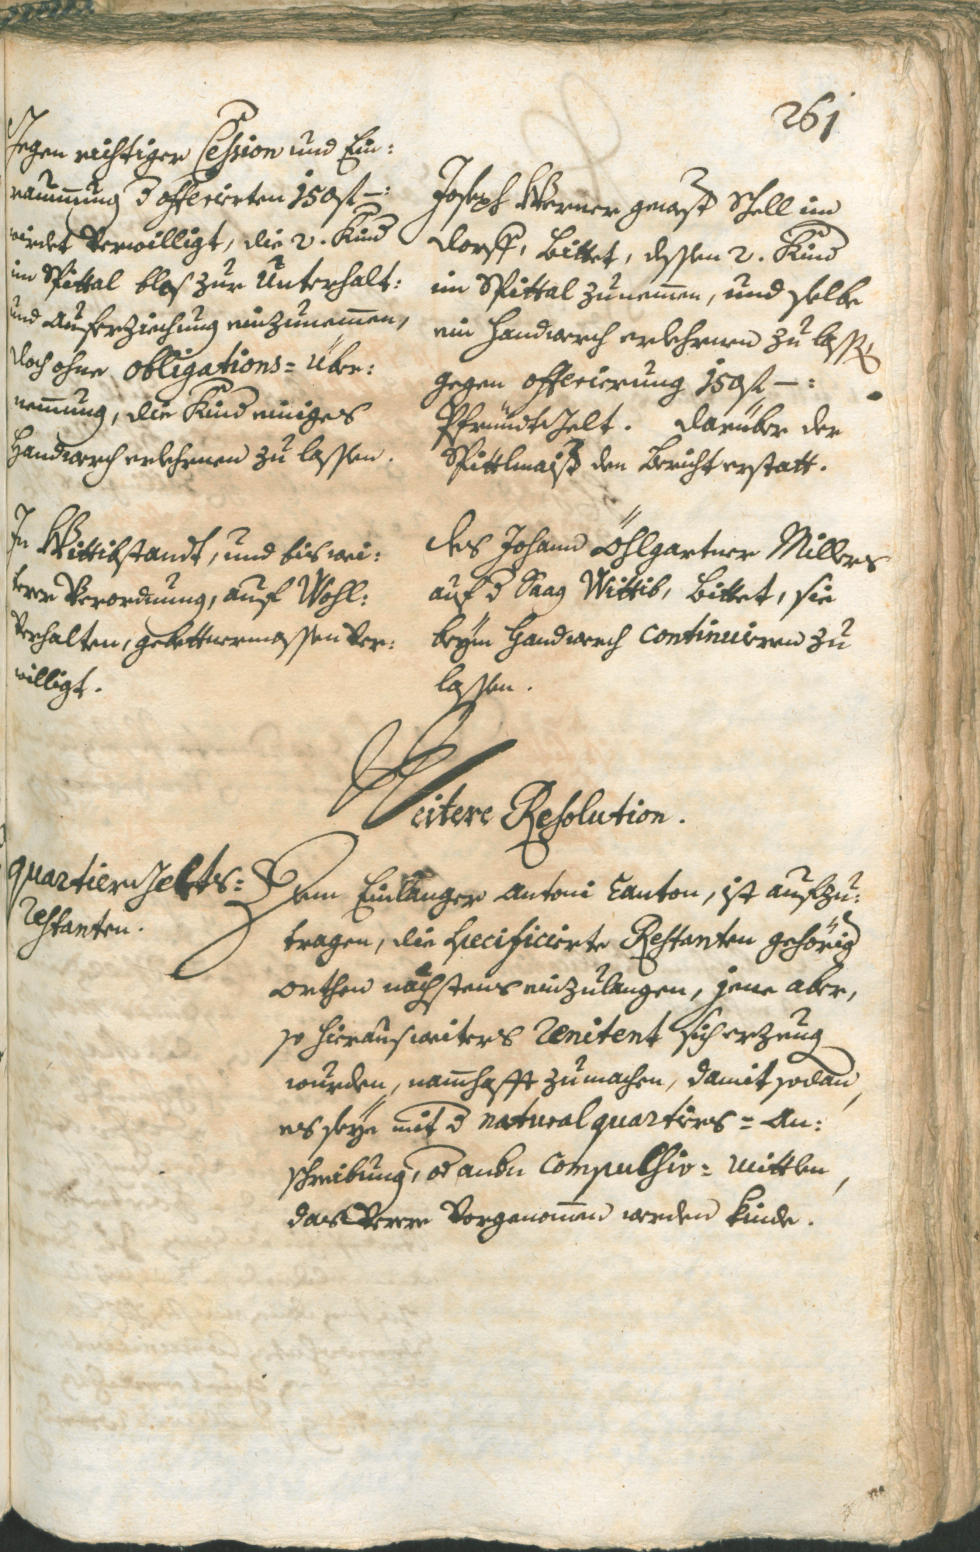 261
Gegen richtiger Cession und Ein:
raummung d offerierten 150 fl –:
wirdet verwilligt, die 2. Kind
im Spittal blos zur Unterhalt:
und Auferziechung einzunemmen,
doch ohne obligations= Über:
nemmung, die Kind einiges
Handwerch erlehrnen zu lassen.
Joseph Werner gewest Schell im
Dorff, bittet, dessen 2. Kind
im Spittal zunemmen, und selbe
ein Handwerch erlehrnen zu lassen
gegen offerierung 150 fl –:
Pfründt Gelt. Darüber der
Spittlmaister den Bericht erstatt.
In Wittibstandt, und bis wei:
terer Verordnung, auf Wohl:
Verhalten, gebettnermassen Ver:
willigt.
Des Johann Öhlgartner Millers
auf d Haag Wittib, bittet, sie
beym Handwerch continuiren zu
lassen.
Weitere Resolution.
quartier Gelts=
restanten.
Dem Einlanger Antoni Canton, ist aufzu:
tragen, die specificierte Restanten gehörig
Orthen nächstens einzulangen, jene aber,
so hierauf weiters renitent sich erzeug
wurden, namhafft zumachen, damit sodan
es seye mit d natural quartiers= An:
schreibung, od andn Compulsiv= Mittlen,
das Verre Vorgenommen werden kinde.